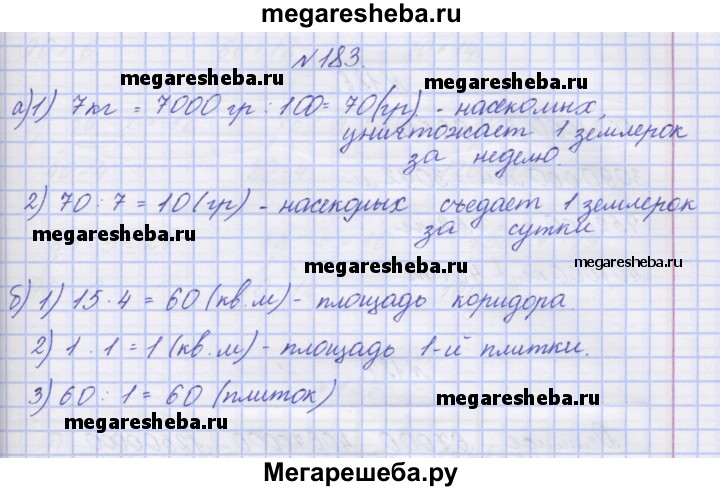 megaresheba.ru
№183.
megaresheba.ru
megaresheba.ru
а)1) 7кг = 7000 гр : 100 = 70(гр) - насекомых,
уничтожает 1 землерок
за неделю.
2) 70 : 7 = 10(гр) - насекомых съедает 1 землерок
за сутки
megaresheba.ru
megaresheba.ru
megaresheba.ru
б) 1) 15·4 = 60 (кв.м) - площадь коридора
2) 1 · 1 = 1 (кв.м) - площадь 1-й плитки.
3) 60 : 1 = 60 (плиток)
megaresheba.ru
megaresheba.ru
Мегарешеба.ру